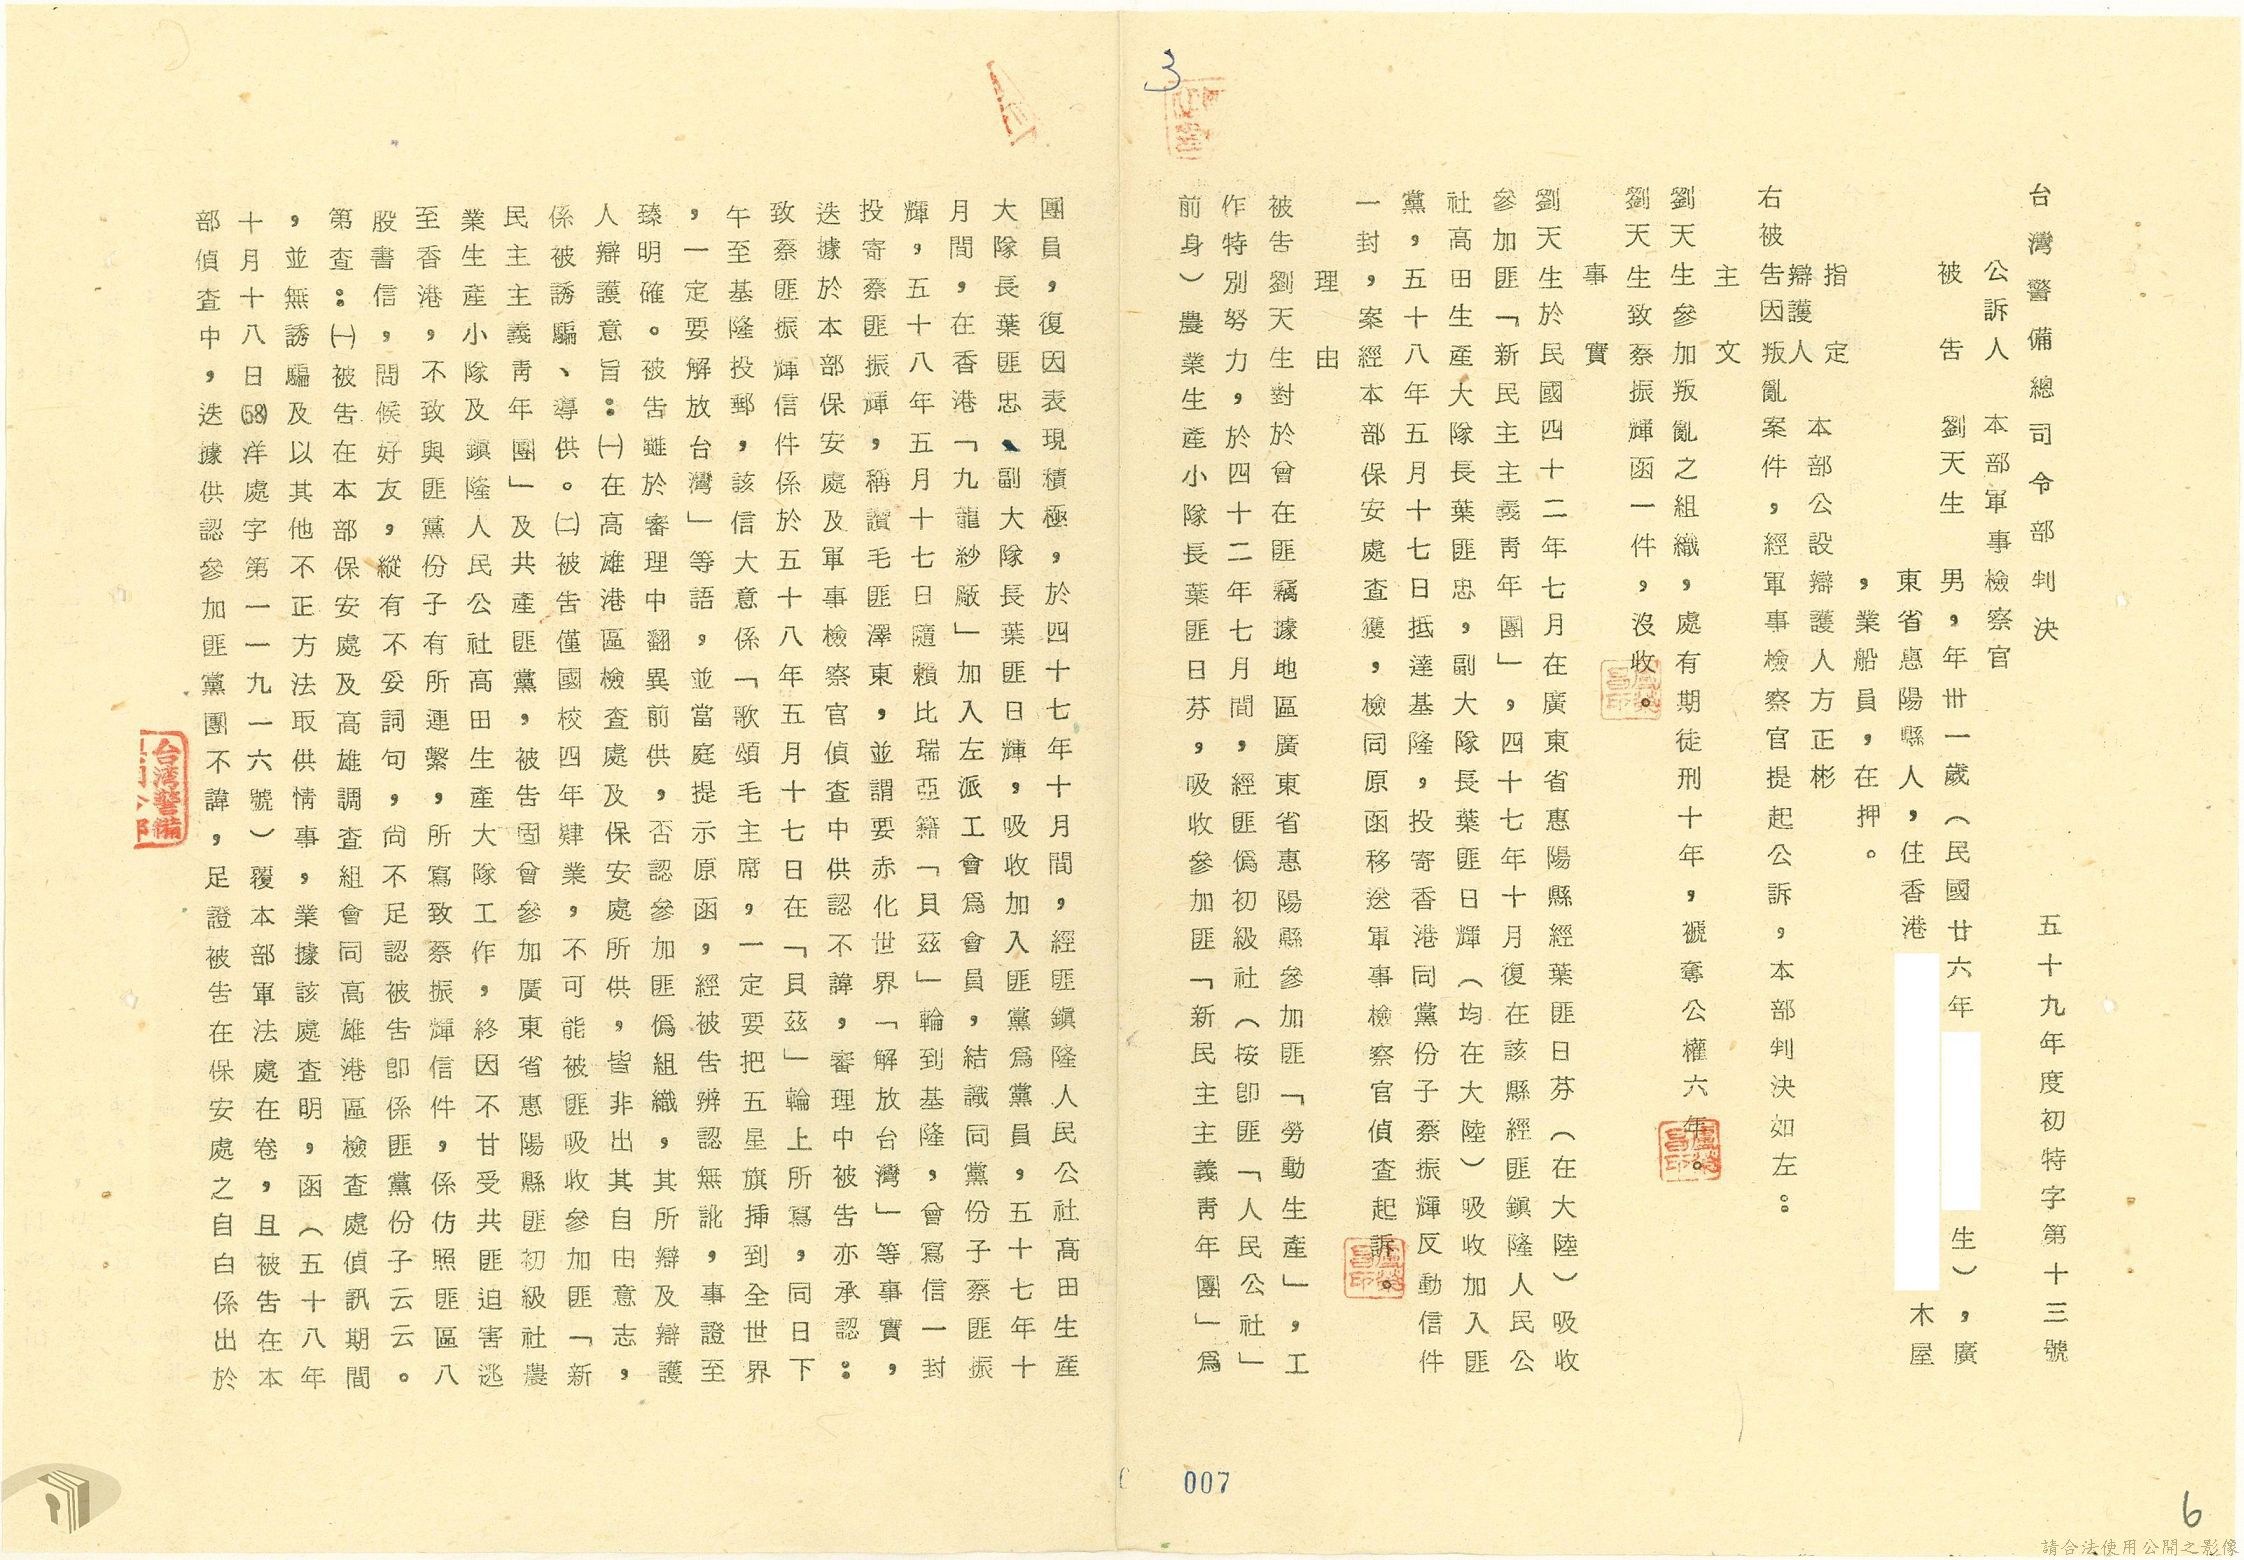 台灣警備總司令部判決
五十九年度初特字第十三號
公訴人 本部軍事檢察官
被告 劉天生 男，年卅一歲（民國廿六年 生），廣
東省惠陽縣人，住香港 木屋
，業船員，在押。
指定
辯護人 本部公設辯護人方正彬
右被告因叛亂案件，經軍事檢察官提起公訴，本部判決如左：
主文
劉天生參加叛亂之組織，處有期徒刑十年，褫奪公權六年。
劉天生致蔡振輝函一件，沒收。
事實
劉天生於民國四十二年七月在廣東省惠陽縣經葉匪日芬（在大陸）吸收
參加匪「新民主主義青年團」，四十七年十月復在該縣經匪鎮隆人民公
社高田生產大隊長葉匪忠，副大隊長葉匪日輝（均在大陸）吸收加入匪
黨，五十八年五月十七日抵達基隆，投寄香港同黨份子蔡振輝反動信件
一封，案經本部保安處查獲，檢同原函移送軍事檢察官偵查起訴。
理由
被告劉天生對於曾在匪竊據地區廣東省惠陽縣參加匪「勞動生產」，工
作特別努力，於四十二年七月間，經匪偽初級社（按卽匪「人民公社」
前身）農業生產小隊長葉匪日芬，吸收參加匪「新民主主義青年團」為
團員，復因表現積極，於四十七年十月間，經匪鎮隆人民公社高田生產
大隊長葉匪忠、副大隊長葉匪日輝，吸收加入匪黨為黨員，五十七年十
月間，在香港「九龍紗廠」加入左派工會為會員，結識同黨份子蔡匪振
輝，五十八年五月十七日隨賴比瑞亞籍「貝茲」輪到基隆，曾寫信一封
投寄蔡匪振輝，稱讚毛匪澤東，並謂要赤化世界「解放台灣」等事實，
迭據於本部保安處及軍事檢察官偵查中供認不諱，審理中被告亦承認：
致蔡匪振輝信件係於五十八年五月十七日在「貝茲」輪上所寫，同日下
午至基隆投郵，該信大意係「歌頌毛主席，一定要把五星旗挿到全世界
，一定要解放台灣」等語，並當庭提示原函，經被告辨認無訛，事證至
臻明確。被告雖於審理中翻異前供，否認參加匪偽組織，其所辯及辯護
人辯護意旨：㈠在高雄港區檢查處及保安處所供，皆非出其自由意志，
係被誘騙、導供。㈡被告僅國校四年肄業，不可能被匪吸收參加匪「新
民主主義青年團」及共產匪黨，被告固曾參加廣東省惠陽縣匪初級社農
業生產小隊及鎮隆人民公社高田生產大隊工作，終因不甘受共匪迫害逃
至香港，不致與匪黨份子有所連繫，所寫致蔡振輝信件，係仿照匪區八
股書信，問候好友，縱有不妥詞句，尚不足認被告卽係匪黨份子云云。
第查：㈠被告在本部保安處及高雄調查組會同高雄港區檢查處偵訊期間
，並無誘騙及以其他不正方法取供情事，業據該處查明，函（五十八年
十月十八日(58)洋處字第一一九一六號）覆本部軍法處在卷，且被告在本
部偵查中，迭據供認參加匪黨團不諱，足證被告在保安處之自白係出於
3
007
6
台灣警備
請合法使用公開之影像